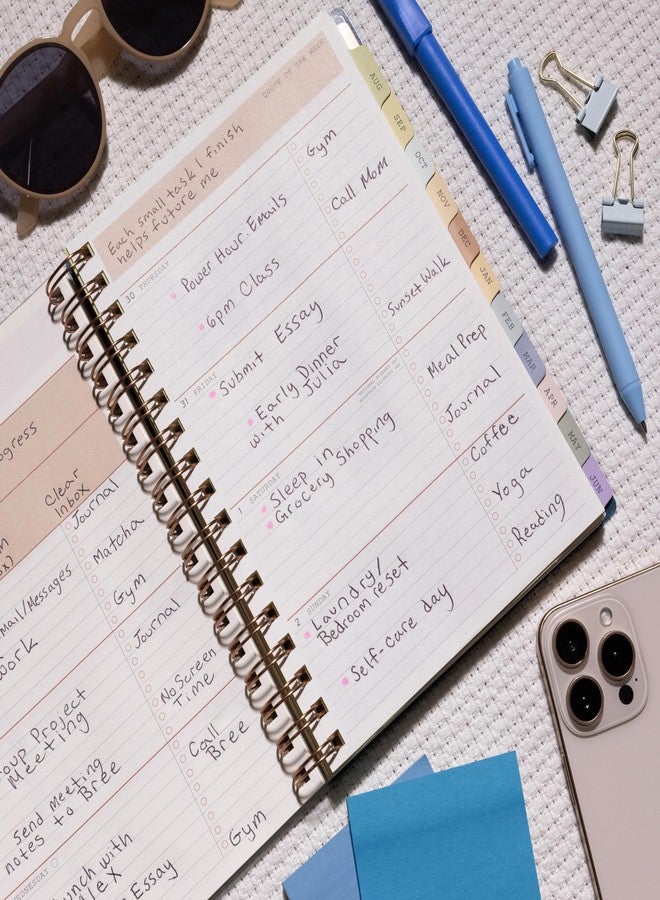 ogress
Clear
Inbox
mail/Messages
work
oup Project
Meeting
send meeting
notes to Bree
WEDNESDAY
unch with
lex
Essay
Journal
Matcha
Gym
Journal
No Screen
Time
Call
Bree
Gym
QUOTE OF THE WEEK
Each small task I finish
helps future me
30 THURSDAY
Power Hour: Emails
6pm Class
Gym
Call Mom
31 FRIDAY
Submit Essay
Early Dinner
with Julia
Sunset Walk
1 SATURDAY
Sleep in
Grocery Shopping
Meal Prep
Journal
Coffee
2 SUNDAY
Laundry/
Bedroom reset
Self-care day
Yoga
Reading
AUG
SEP
OCT
NOV
DEC
JAN
FEB
MAR
APR
MAY
JUN